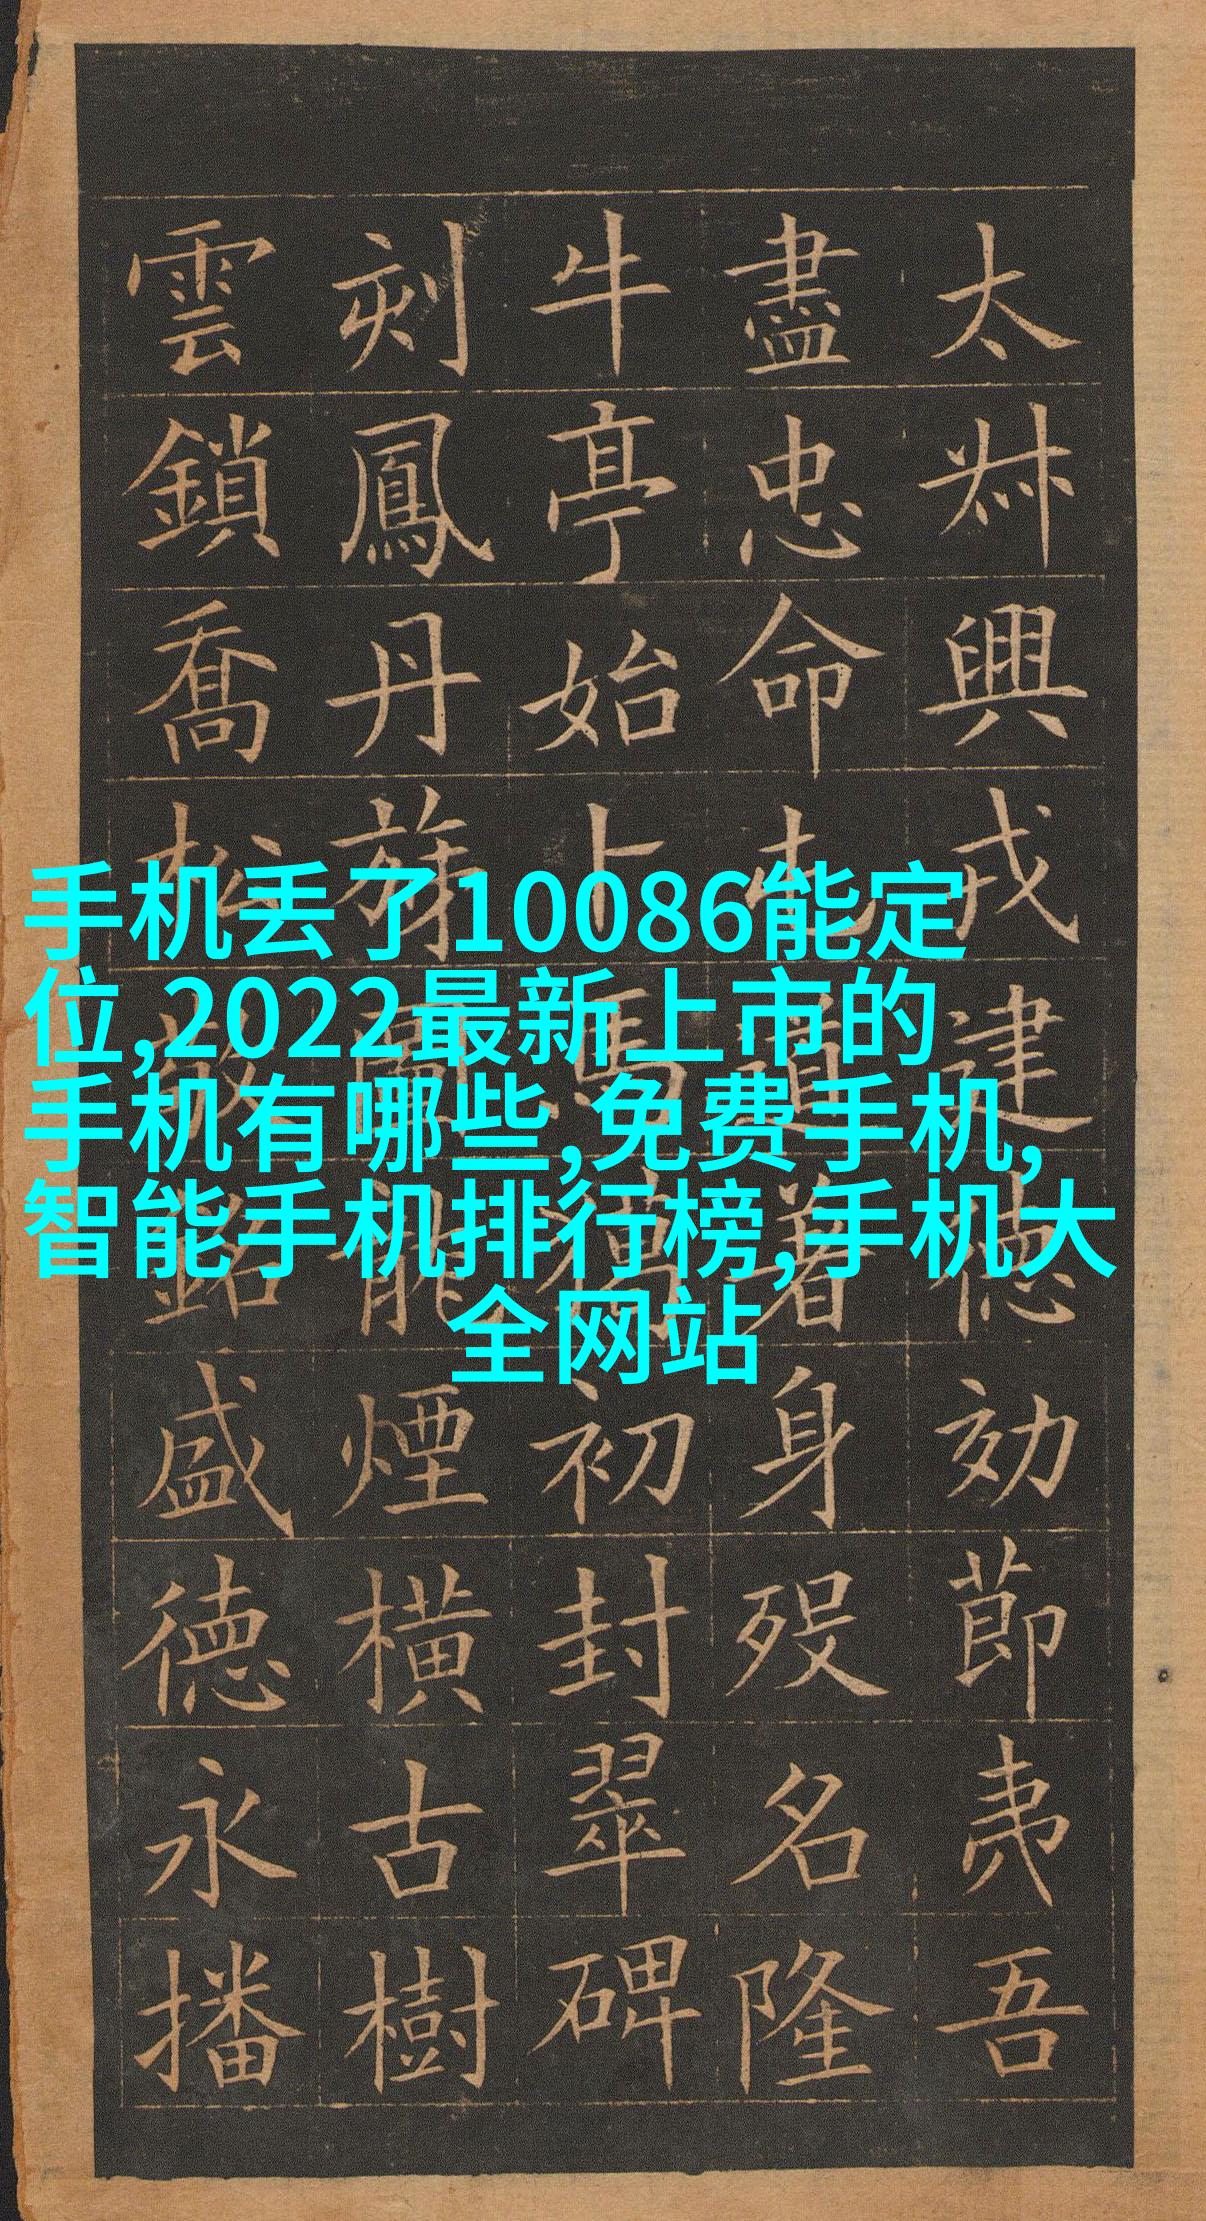 手机丢了10086能定
位,2022最新上市的
手机有哪些,免费手机,
智能手机排行榜,手机大
全网站
太叔興戎建德効節夷吾
盡忠命屯道著身歿名隆
牛亭始卜馬初封翠碑
刻鳳丹旐圖龍煙橫古樹
雲鎖喬松敬銘盛德永播